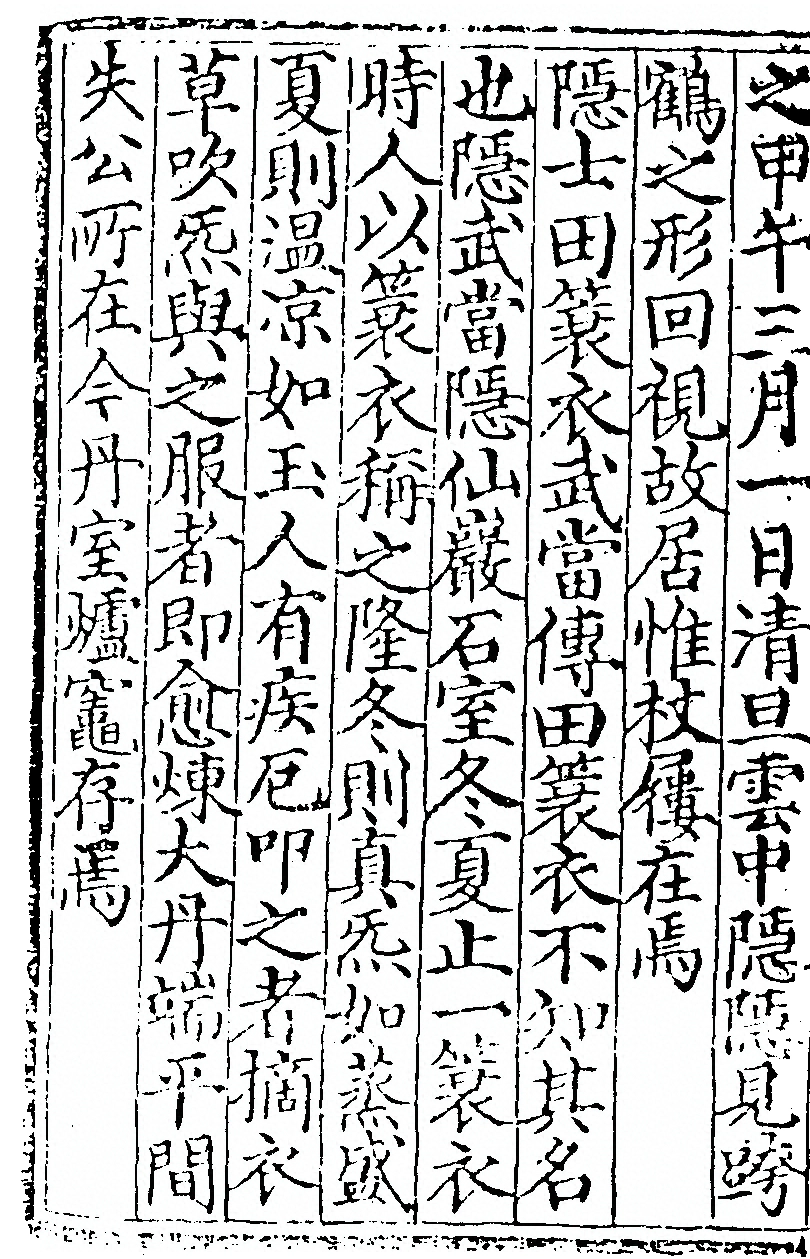 之甲午三月一日清旦雲中隠隠見跨
鶴之形回視故居惟杖屨在焉
隠士田蓑衣武當傳田蓑衣不知其名
也隠武當隠仙巖石室冬夏止一蓑衣
時人以蓑衣稱之隆冬則真炁如蒸盛
夏則温凉如玉人有疾厄叩之者摘衣
草吹炁與之服者即愈煉大丹端平間
失公所在今丹室爐竈存焉